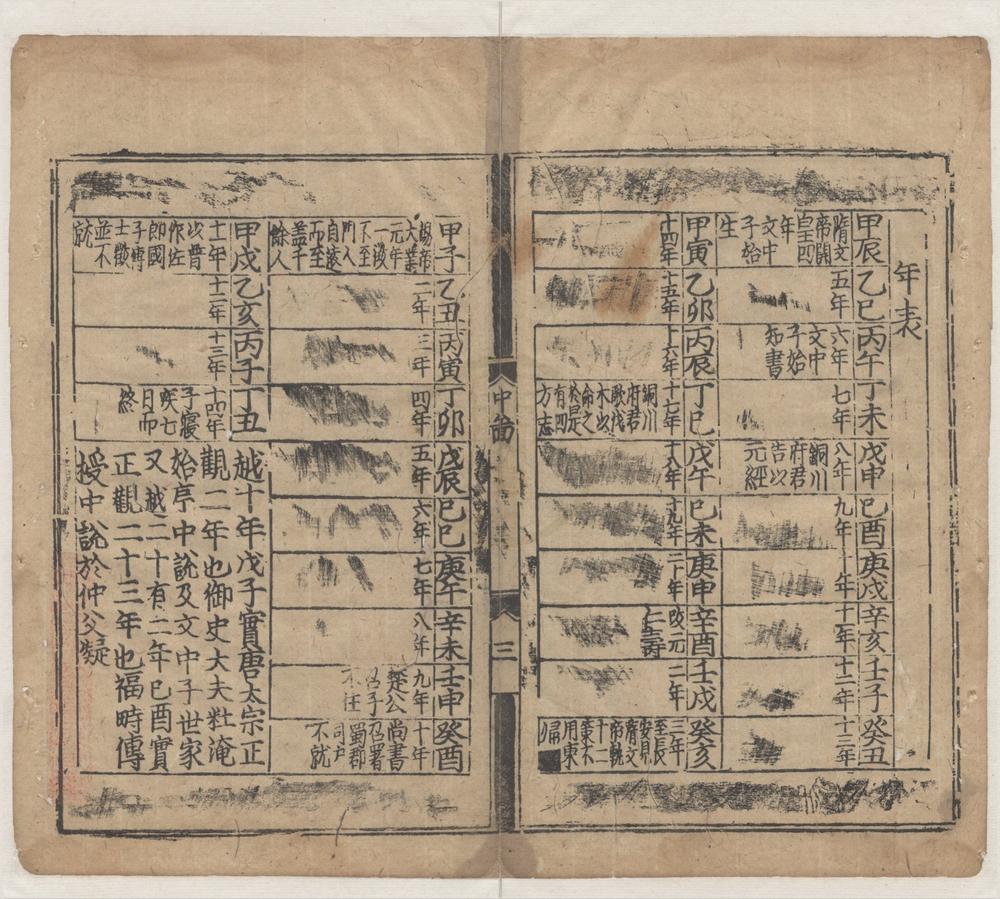 年表
甲辰
隋文
帝開
皇四
年
文中
子始
生
乙巳
五年
丙午
六年
文中
子始
知書
丁未
七年
戊申
八年
銅川
府君
告以
元經
己酉
九年
庚戌
十年
辛亥
十一年
壬子
十二年
癸丑
十三年
甲寅
十四年
乙卯
十五年
丙辰
十六年
丁巳
十七年
銅川
府君
歌伐
木以
命之
於是
有四
方志
戊午
十八年
己未
十九年
庚申
二十年
辛酉
改元
仁壽
壬戌
二年
癸亥
三年
至長
安見
隋文
帝執
十二
策不
用東
歸
中笛
三
甲子
煬帝
大業
元年
一徵
不至
門人
自遠
而至
蓋千
餘人
乙丑
二年
丙寅
三年
丁卯
四年
戊辰
五年
己巳
六年
庚午
七年
辛未
八年
壬申
九年
楚公
召子
不往
癸酉
十年
尚書
召署
蜀郡
司户
不就
甲戌
十一年
以普
作佐
郎國
子博
士徵
並不
就
乙亥
十二年
丙子
十三年
丁丑
十四年
子寢
疾七
日而
終
越十年戊子實唐太宗正
觀二年也御史大夫杜淹
始序中說及文中子世家
又越二十有二年己酉實
正觀二十三年也福畤傳
授中說於仲父凝